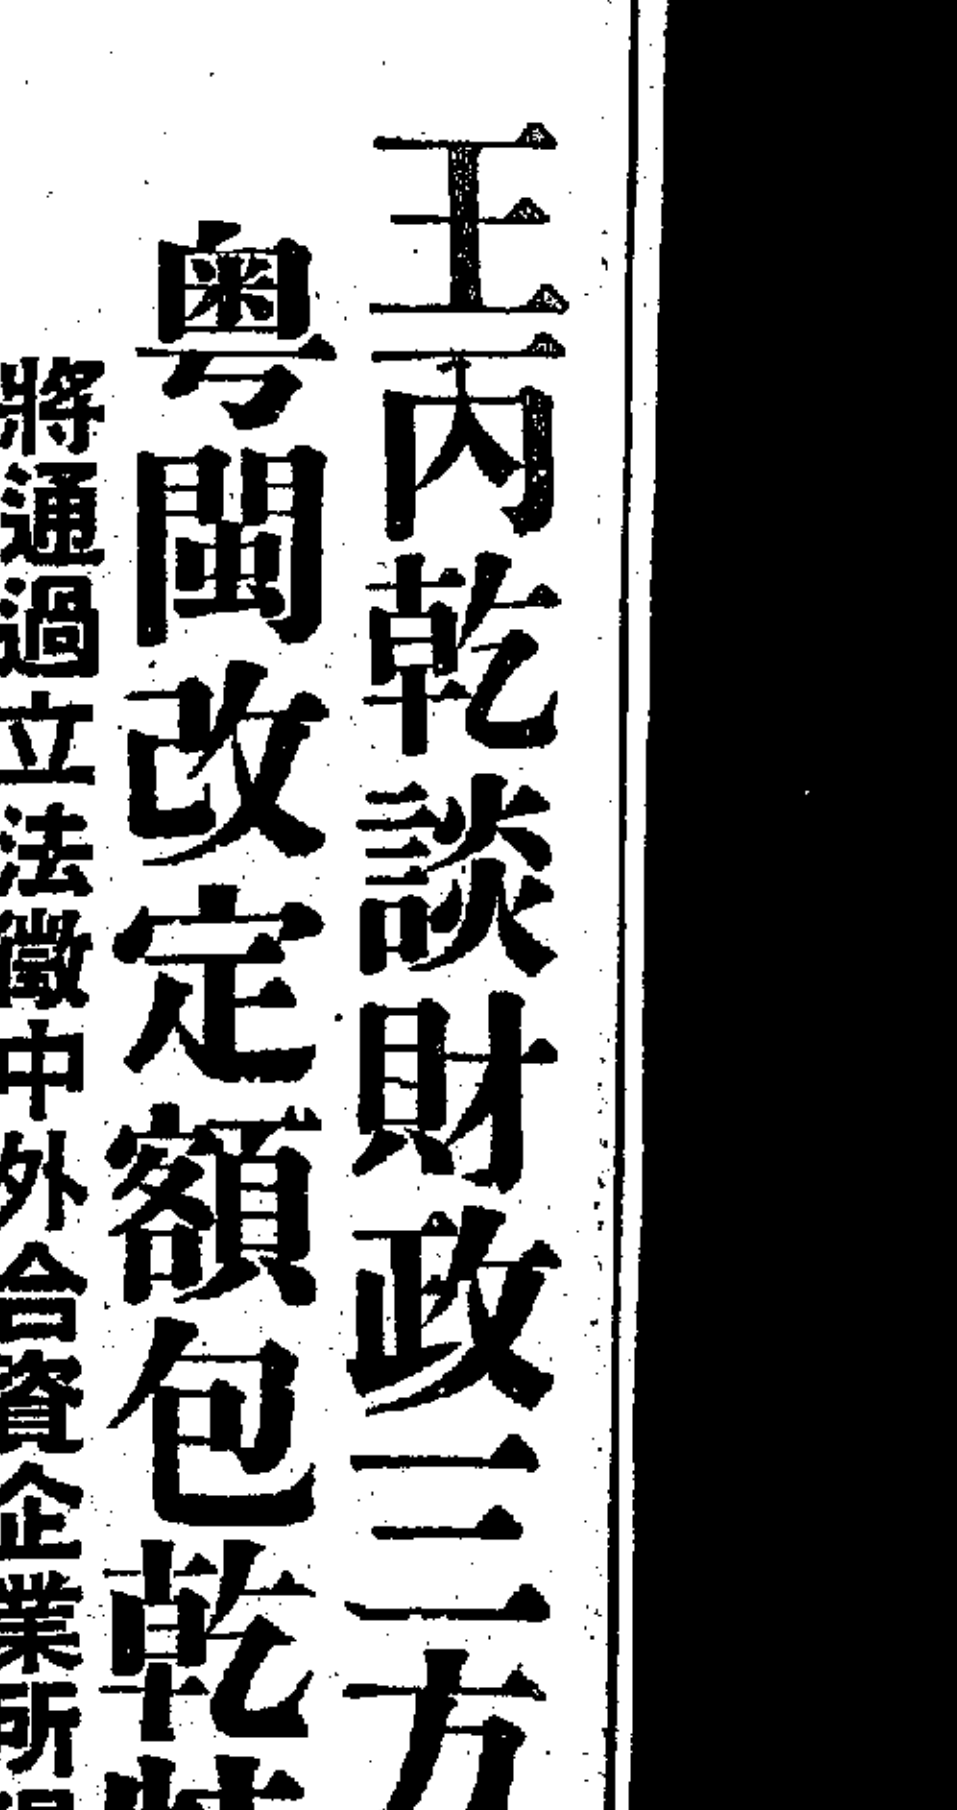 王丙乾談財政三方
粤閩改定額包乾特
將通過立法徵中外合資企業所得